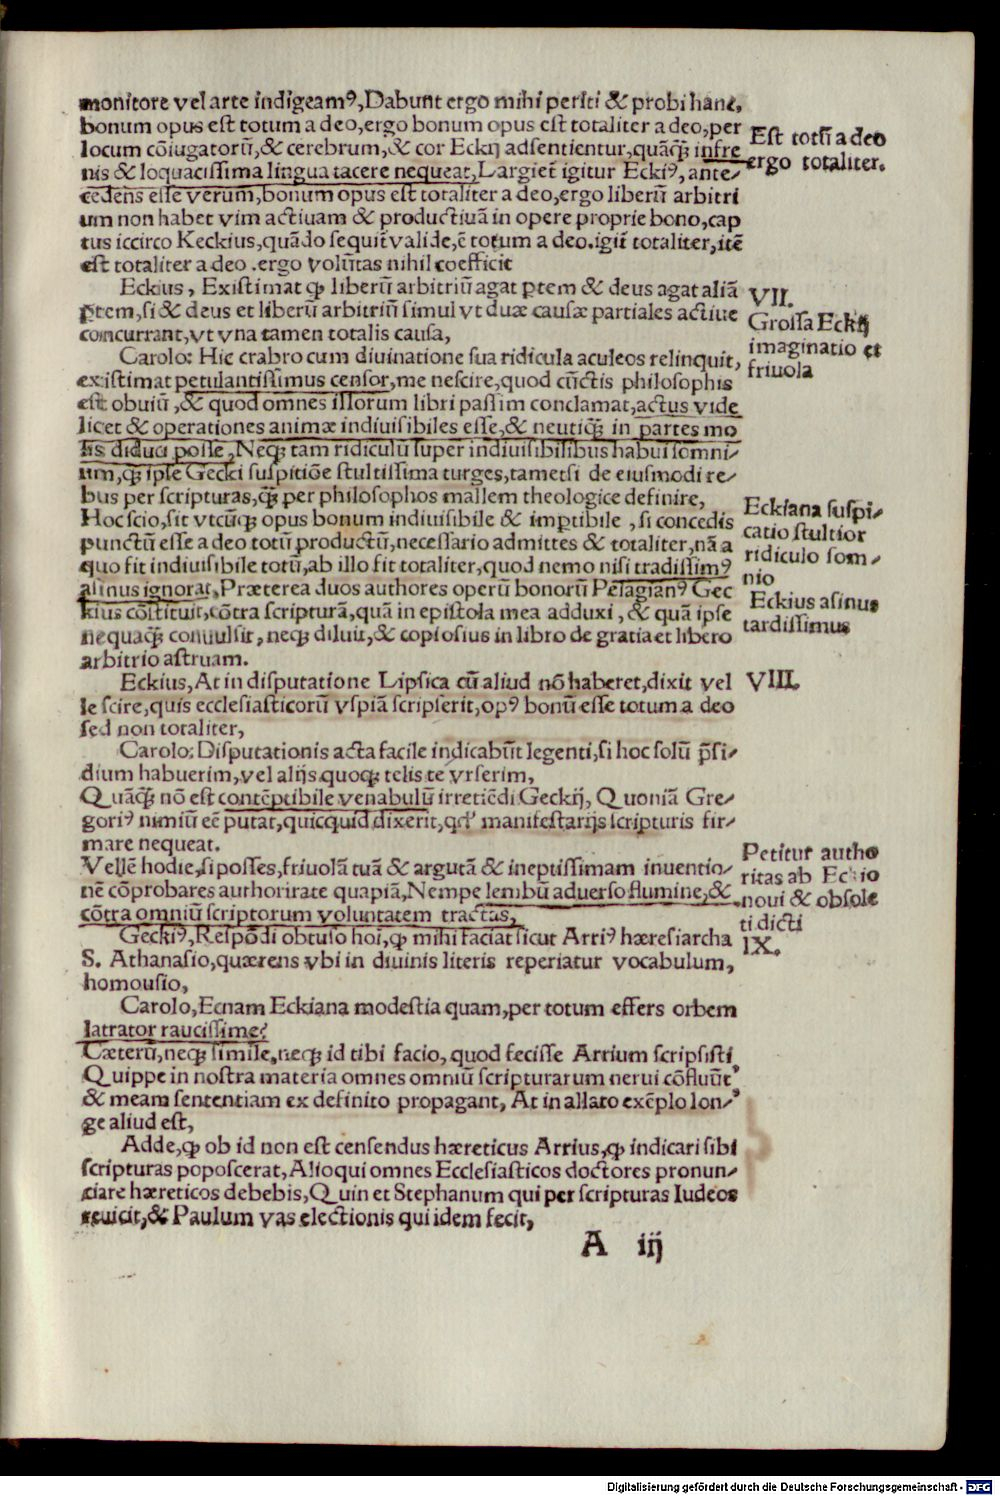 monitore vel arte indigeamꝰ, Dabunt ergo mihi periti & probi hanc,
bonum opus est totum a deo, ergo bonum opus est totaliter a deo, per
locum cōiugatorū, & cerebrum, & cor Eckij adsentientur, quāqꝫ infre
nis & loquacissima lingua tacere nequeat, Largiet̄ igitur Eckiꝰ, ante-
cedens esse verum, bonum opus est totaliter a deo, ergo liberū arbitri
um non habet vim actiuam & productiuā in opere proprie bono, cap
tus iccirco Keckius, quādo sequit̄ valide, ē totum a deo. igit̄ totaliter, itē
est totaliter a deo .ergo volūtas nihil coefficit
Est totū a deo
ergo totaliter.
Eckius, Existimat ꝙ liberū arbitriū agat ꝑtem & deus agat aliā
ꝑtem, si & deus et liberū arbitriū simul vt duæ causæ partiales actiue
concurrant, vt vna tamen totalis causa,
VII.
Grossa Eckij
imaginatio et
friuola
Carolo: Hic crabro cum diuinatione sua ridicula aculeos relinquit,
existimat petulantissimus censor, me nescire, quod cūctis philosophis
est obuiū, & quod omnes illorum libri passim conclamat, actus vide
licet & operationes animæ indiuisibiles esse, & neutiqꝫ in partes mo
lis diduci posse, Neqꝫ tam ridiculū super indiuisibilibus habui somni-
um, qꝫ ipse Gecki suspitiōe stultissima turges, tametsi de eiusmodi re-
bus per scripturas, qꝫ per philosophos mallem theologice definire,
Hoc scio, sit vtcūqꝫ opus bonum indiuisibile & imꝑtibile, si concedis
punctū esse a deo totū productū, necessario admittes & totaliter, nā a
quo fit indiuisibile totū, ab illo fit totaliter, quod nemo nisi tradissimꝰ
asinus ignorat, Præterea duos authores operū bonorū Pelagianꝰ Gec
kius cōstituit, cōtra scripturā, quā in epistola mea adduxi, & quā ipse
nequaqꝫ conuulsit, neqꝫ diluit, & copiosius in libro de gratia et libero
arbitrio astruam.
Eckiana suspi-
catio stultior
ridiculo som-
nio
Eckius asinus
tardissimus
Eckius, At in disputatione Lipsica cū aliud nō haberet, dixit vel
le scire, quis ecclesiasticorū vspiā scripserit, opꝰ bonū esse totum a deo
sed non totaliter,
VIII.
Carolo: Disputationis acta facile indicabūt legenti, si hoc solū p̄si-
dium habuerim, vel alijs quoqꝫ telis te vrserim,
Quāqꝫ nō est cōtēptibile venabulū irretiēdi Geckij, Quoniā Gre-
goriꝰ nimiū eē putat, quicquid dixerit, qd' manifestarijs scripturis fir-
mare nequeat.
Vellē hodie, si posses, friuolā tuā & argutā & ineptissimam inuentio-
nē cōprobares authoritate quapiā, Nempe lembū aduerso flumine, &
cōtra omniū scriptorum voluntatem tractas,
Petitur autho
ritas ab Eckio
noui & obsole
ti dicti
Geckiꝰ, Respōdi obtuso hoi, ꝙ mihi faciat sicut Arriꝰ hæresiarcha
S. Athanasio, quærens vbi in diuinis literis reperiatur vocabulum,
homousio,
IX.
Carolo, Ecnam Eckiana modestia quam, per totum effers orbem
latrator raucissime?
Cæterū, neqꝫ simile, neqꝫ id tibi facio, quod fecisse Arrium scripsisti
Quippe in nostra materia omnes omniū scripturarum nerui cōfluūt
& meam sententiam ex definito propagant, At in allato exēplo lon-
ge aliud est,
Adde, ꝙ ob id non est censendus hæreticus Arrius, ꝙ indicari sibi
scripturas poposcerat, Alioqui omnes Ecclesiasticos doctores pronun-
ciare hæreticos debebis, Quin et Stephanum qui per scripturas Iudeos
reuicit, & Paulum vas electionis qui idem fecit,
A iij
Digitalisierung gefördert durch die Deutsche Forschungsgemeinschaft - DFG